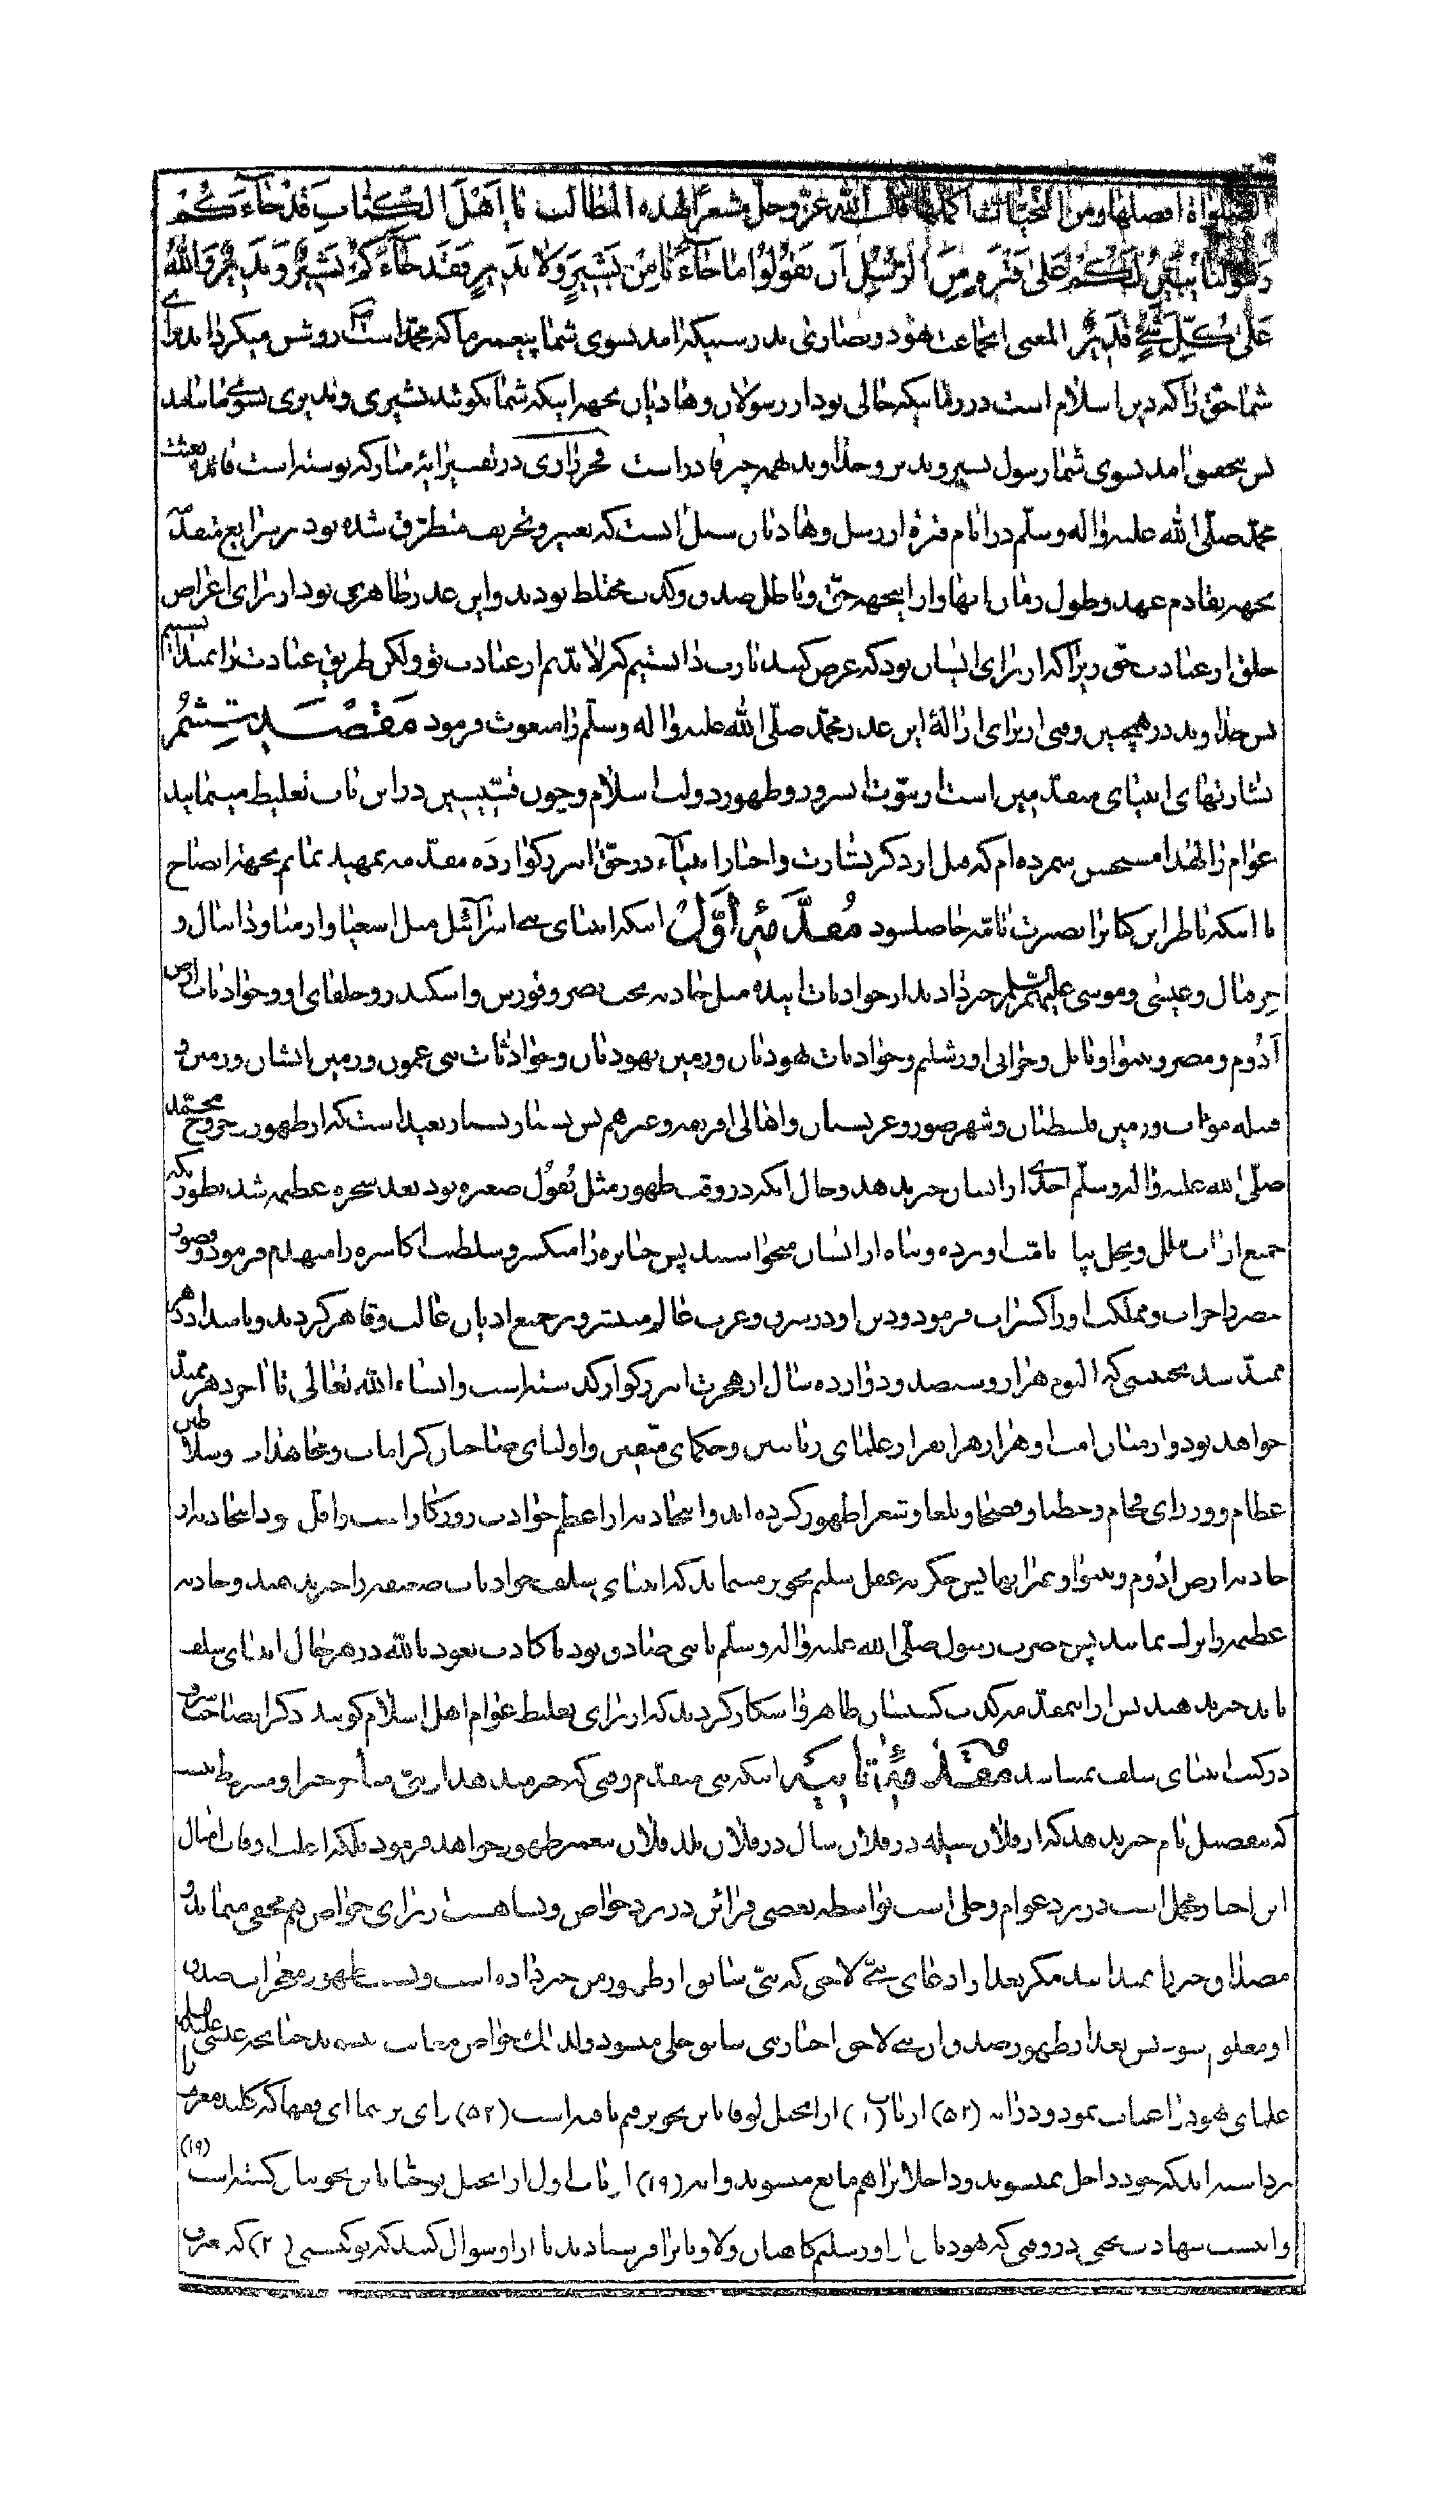 الصلواة افضلها ومن التحیات اکملها قال الله عزّ وجلّ مشعرًا لهذه المطالب یا اَهْلَ الْکِتٰابِ قَدْ جٰاءَکُمْ
رَسُولُنٰا یُبَیِّنُ لَکُمْ عَلیٰ فَتْرَهٍ مِنَ الرُّسُلِ اَن تَقُولُوا مٰا جٰاءَنٰا مِنْ بَشِیرٍ وَلاٰ نَذِیرٍ فَقَدْ جٰاءَکُمْ بَشِیرٌ وَنَذِیرٌ وَاللهُ
عَلیٰ کُلِّ شَیْءٍ قَدِیرٌ المعنی ایجماعت هود و نصاری بدرستیکه امد بسوی شما پیغمبر ما که محمّد است روشن میکرداند برای
شما حق را که دین اسلام است در زمانیکه خالی بود از رسولان و هادیان بجهه اینکه شما نکوئید بشیری و نذیری بسوی ما نیامد
پس بتحقیق امد بسوی شما رسول بشیر و نذیر و خداوند بهمه چیز قادر است فخر رازی در تفسیر ایهٔ مبارکه نوشته است فایده بعثت
محمّد صلّی الله علیه واله وسلّم در ایام فتره از رسل و هادیان سبل انست که تغییر و تحریف متطرّق شده بود بر شرایع متقدّمه
بجهه تقادم عهد و طول زمان انها و از اینجهه حقّ و باطل صدق و کذب مختلط بودند و این عذر ظاهری بود از برای اعراض
خلق از عبادت حق زیرا که از برای ایشان بود که عرض کنند یا رب دانستیم که لابدّیم از عبادت تو ولکن طریق عبادت را نمیدانستیم
پس خداوند در همچنین وقتی از برای ازالهٔ این عذر محمّد صلّی الله علیه واله وسلّم را مبعوث فرمود مَقْصَد شِشُم
بشارتهای انبیای متقدّمین است از نبوّت انسرور و ظهور دولت اسلام وچون قسّیسین در این باب تغلیط مینمایند
عوام را لهذا مستحسن شمرده‌ام که قبل از ذکر بشارت و اخبار انبیآء در حقّ انبزرکوار ده مقدّمه تمهید نمایم بجهة ایضاح
تا اینکه ناظر این کتابرا بصیرت تامّه حاصلشود مُقدَّمَهِ أوَّلْ اینکه انبیای بنی اسرآئیل مثل اشعیا و ارمیا و دانیال و
حزقیال و عیسی و موسی علیهم السّلم خبر داده‌اند از حوادثات اینده مثل حادثه بخت نصر و قورس و اسکندر و خلفای او و حوادثات ارض
اَدُوم و مصر و نینوا و بابل و خرابی اورشلیم و حوادثات یهودیان و زمین یهودیان و حوادثات بنی عمون و زمین ایشان و زمین و
قبیله مواب و زمین فلسطیان و شهر صور و عربستان و اهالی افریقه و غیر هم پس بسیار بسیار بعید است که از ظهور و خروج محمّد
صلّی الله علیه واله وسلّم احدی از ایشان خبر ندهد و حال انکه در وقت ظهور مثل بُقول صغیره بود بعد شجره عظیمه شد بطوریکه
جمیع ارباب ملل و نحل بپا یافت او برده و پناه از ایشان میخواستند پس جبابره را منکسر و سلطنت اکاسره را منهدم فرمود وقصور
قیصر را خراب و مملکت او را کنز اب فرمود و دین او در شرق و غرب عالم منتشر و بر جمیع ادیان غالب و قاهر کردید و بامتداد دهر
ممتدّ شد بحدّی که الیوم هزار و سیصد و دوازده سال از هجرت انبزرکوار کذشته است و انشاء الله تعالی تا اخر دهر ممتدّ
خواهد بود و از میان امت او هزار هزار هزار علمای ربّانیین و حکمای متقین و اولیای صاحبان کرامات و مجاهدات وسلاطین
عظام و وزرای فخام و خطبا و فصحا و بلغا و شعرا ظهور کرده‌اند و اینحادثه از اعظم حوادث روزکار است و اقلّ نبود اینحادثه از
حادثه ارض ادُوم و نینوا و غیر انها پس چکونه عقل سلیم تجویز مینماید که انبیای سلف حوادثات ضعیفه را خبر بدهند و حادثه
عظیمه را ترک نمایند پس حضرت رسول صلّی الله علیه واله وسلّم یا نبی صادق بود یا کاذب نعوذ بالله در هر حال انبیای سلف
باید خبر بدهند پس از این مقدّمه کذب کشیشان ظاهر و اشکار کردید که از برای تغلیط عوام اهل اسلام کویند ذکر انصاحب شرف
در کتب انبیای سلف نمیباشد مُقدّمَهِ ثانیَه اینکه نبی متقدّم وقتی که خبر میدهد از نبیّ متأخر خبر او مشروط نیست
که بتفصیل تام خبر بدهد که از فلان قبیله در فلان سال در فلان بلد فلان پیغمبر ظهور خواهد فرمود بلکه اغلب اوقات امثال
این اخبار مجمل است در نزد عوام و جلی است بواسطه بعضی قرائن در نزد خواص و بسا هست از برای خواص هم مخفی میماند و
مصداق خبر را نمیدانند مکر بعد از ادعای نبیّ لاحق که نبیّ سابق از ظهور من خبر داده است و بسبب ظهور معجزات صدق
او معلوم شود پس بعد از ظهور صدق ان نبی لاحق اخبار نبی سابق جلی میشود ولذلک خواص معاتب میشوند چنانچه عیسی علیه السلم
علمای هود را عتاب نمود در ایه (۵۲) از باب (۱۱) از انجیل لوقا باین نحو برقم یافته است (۵۲) وای بر شما ای فقها که کلید معرفت را
برداشته‌اید که خود داخل نمیشوید و داخلانرا هم مانع میشوید و ایه (۱۹) از باب اول از انجیل یوحنا باین نحو بیان کشته است (۱۹)
واینست شهادت یحیی در وقتی که هودیان از اورشلیم کاهنان ولاویانرا فرستادند تا از او سوال کنند که تو کیستی (۲۰) که معرفت